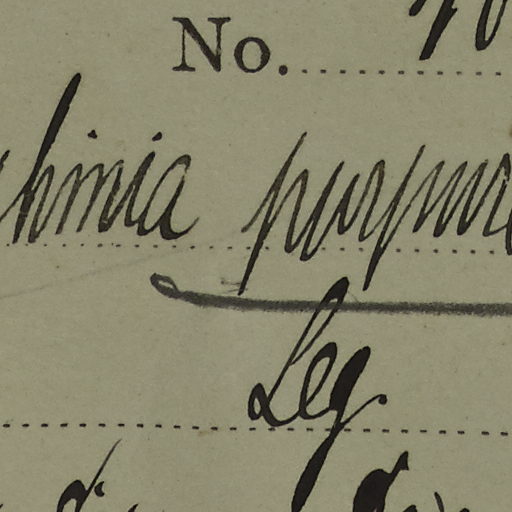 No.
hinia purpure
Leg.